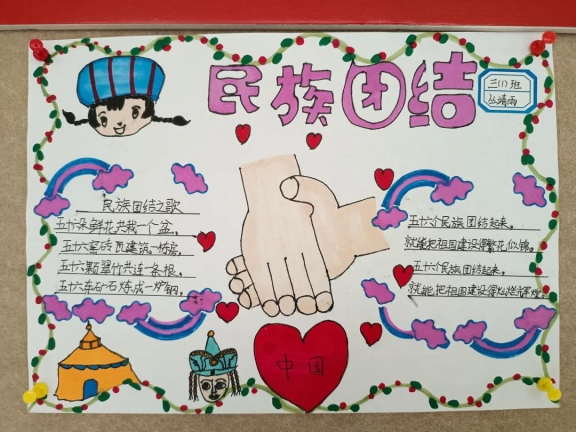 民族团结
三(1)班
丛靖雨
民族团结之歌
五十六朵鲜花共栽一个盆。
五十六窑砖瓦建筑一栋房。
五十六颗翠竹共连一条根。
五十六车矿石炼成一炉钢。
五十六个民族团结起来。
就能把祖国建设得繁花似锦。
五十六个民族团结起来。
就能把祖国建设得灿烂辉煌。
中国